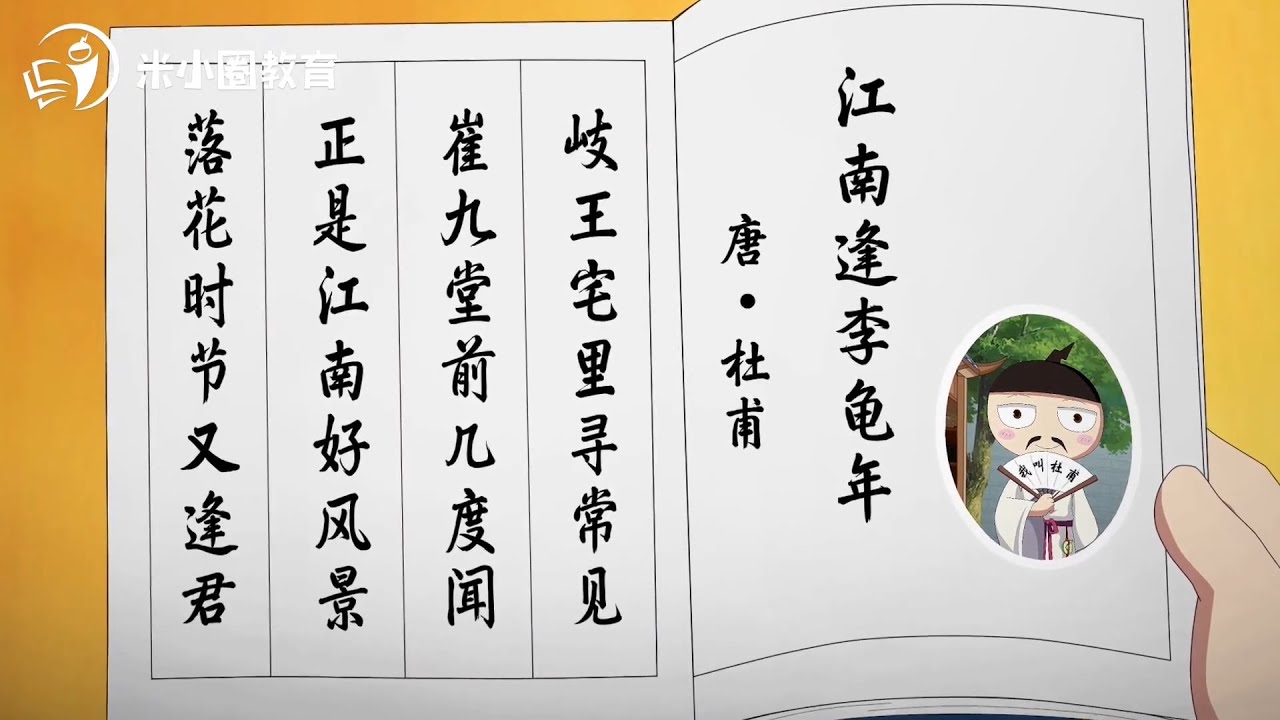 米小圈教育
江南逢李龟年
唐·杜甫
岐王宅里寻常见
崔九堂前几度闻
正是江南好风景
落花时节又逢君
我叫杜甫